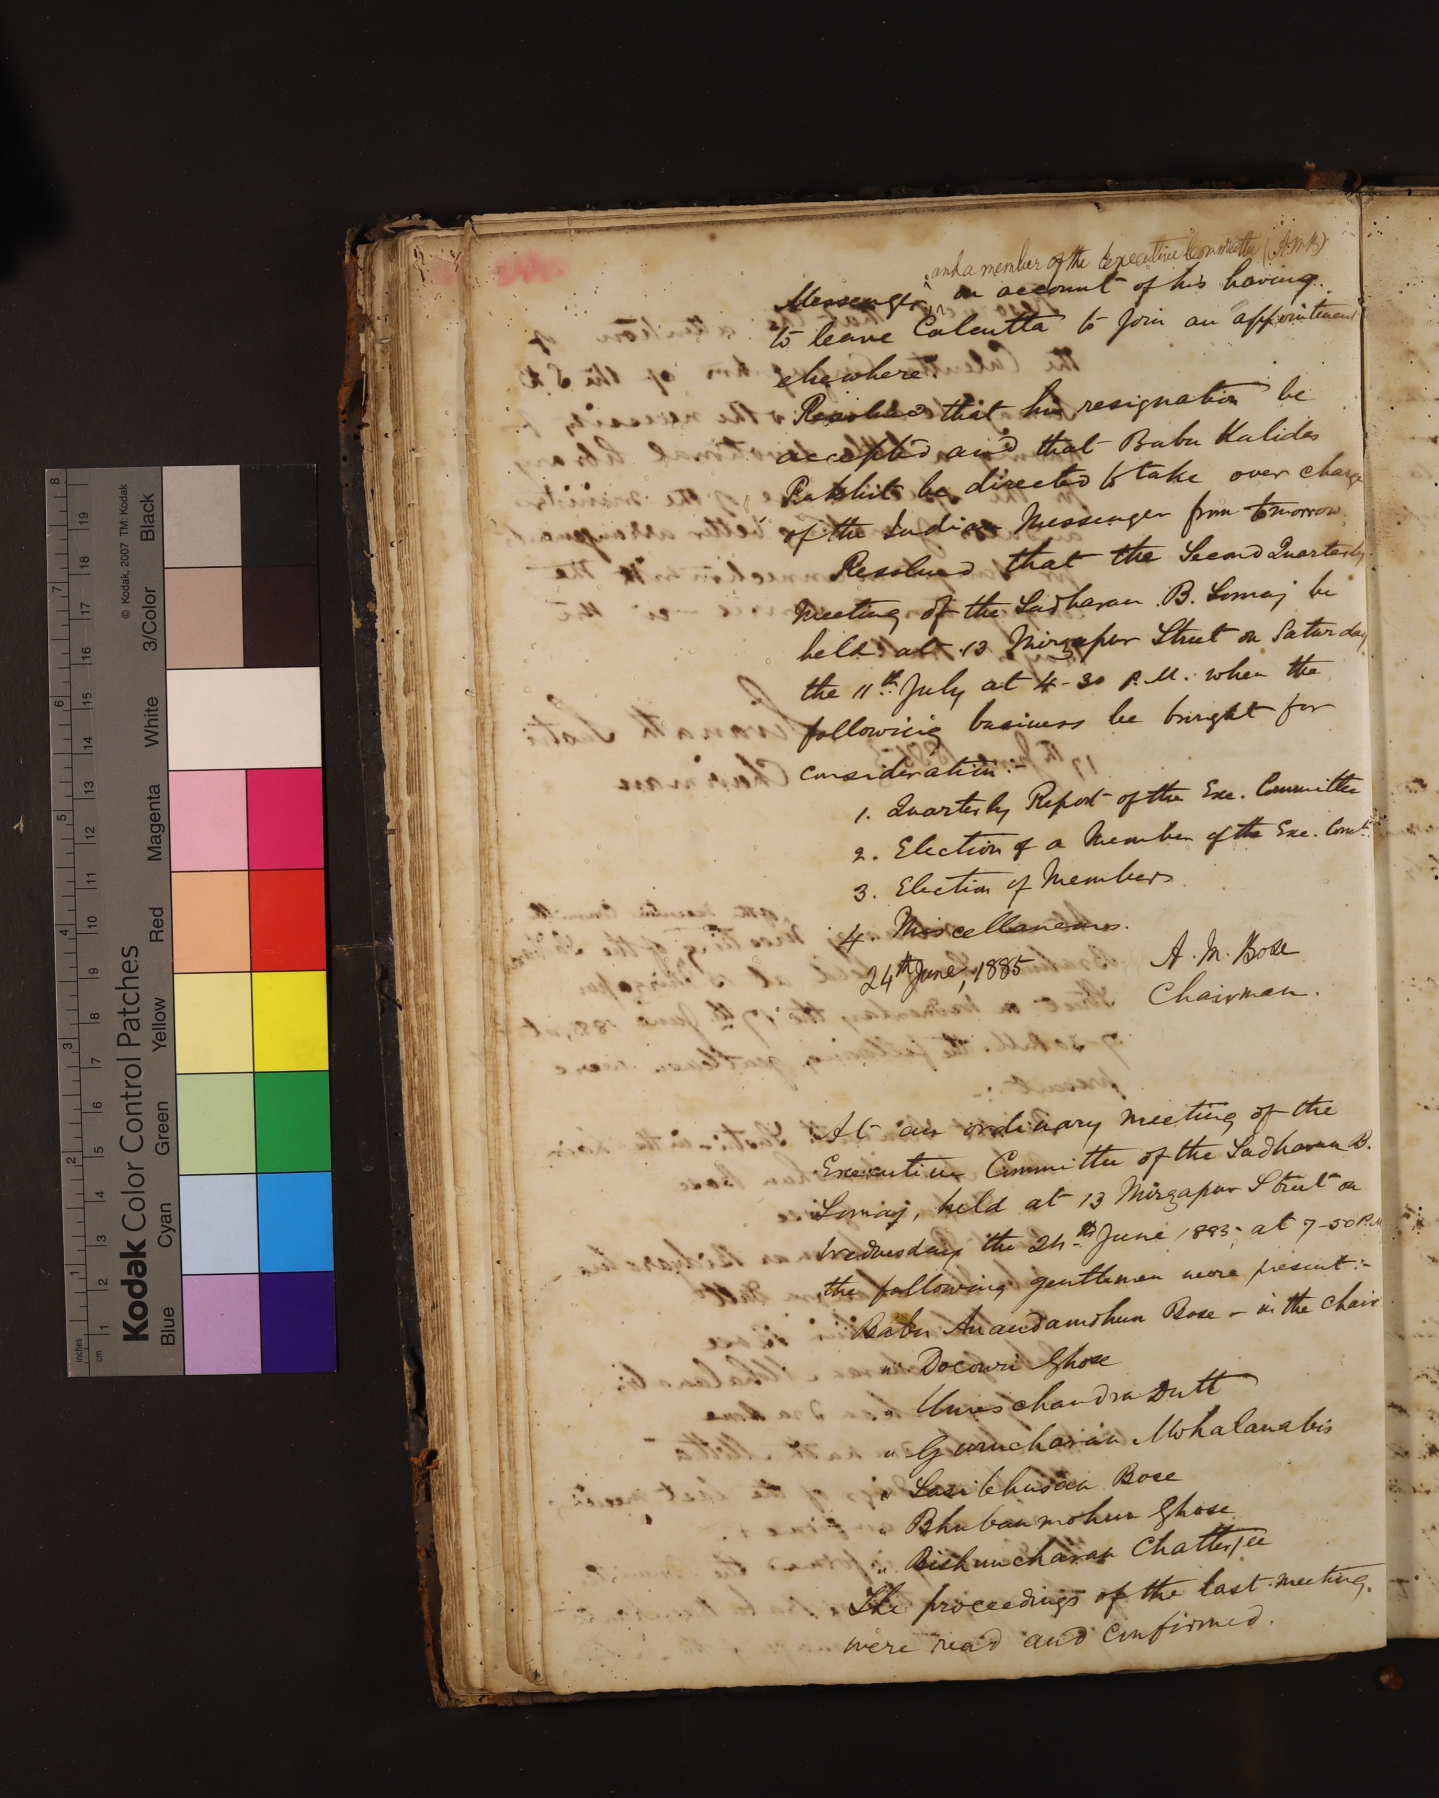 and a member of the Executive Committee (A.M.B)
Messenger, on account of his having
to leave Calcutta to join an appointment
elsewhere.
Resolved that his resignation be
accepted and that Babu Kalidas
Rakshit be directed to take over charge
of the Indian Messenger from tomorrow.
Resolved that the Second Quarterly
Meeting of the Sadharan B. Somaj be
held at 13 Mirzapur Street on Saturday
the 11th July at 4-30 P.M. when the
following business be brought for
consideration:-
1. Quarterly Report of the Exe. Committee
2. Election of a Member of the Exe. Comtt.
3. Election of Members
4 Miscellaneous.
24th June, 1885
A. M. Bose
Chairman.
At an ordinary meeting of the
Executive Committee of the Sadharan B.
Somaj, held at 13 Mirzapur Street on
Wednesday the 24th June 1885 at 7-30 P.M
the following gentlemen were present:-
Babu Anandamohun Bose - in the chair
" Docowri Ghose
Umeschandra Dutt
" Gurucharan Mohalanabis
" Sasibhusan Bose
" Bhubanmohun Ghose
" Bishuncharan Chatterjee
The proceedings of the last meeting
were read and confirmed.
Kodak Color Control Patches
© Kodak, 2007 TM: Kodak
Blue Cyan Green Yellow Red Magenta White 3/Color Black
inches 1 2 3 4 5 6 7 8
cm 1 2 3 4 5 6 7 8 9 10 11 12 13 14 15 16 17 18 19